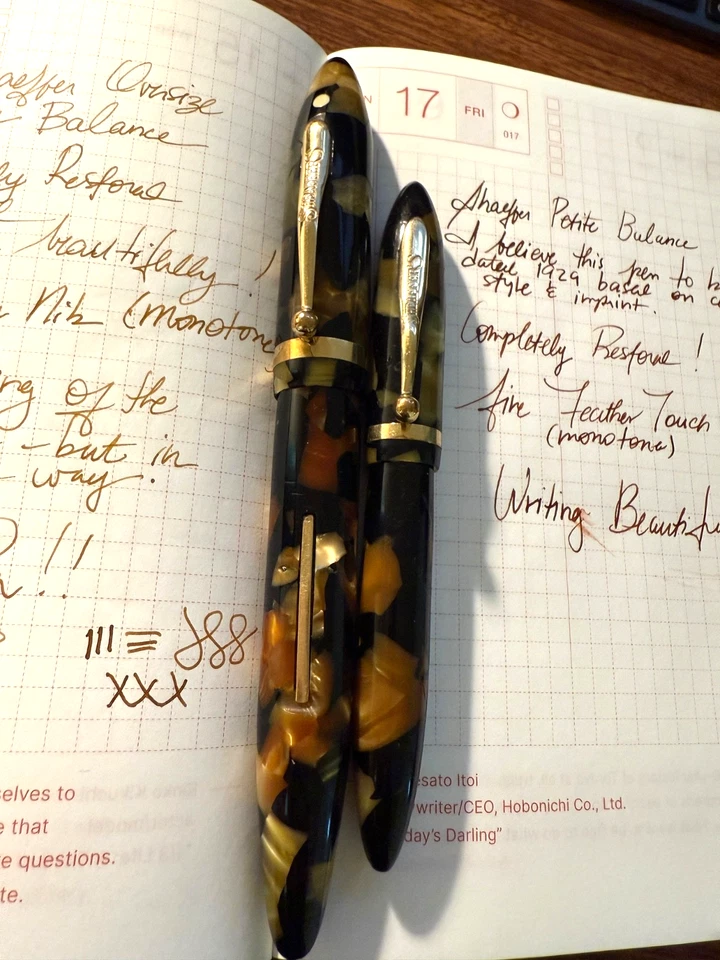 Oversize
Balance
Restored
beautifully!
Nib (Monotone
of the
- but in
way.
!!
III ≡
XXX
selves to
that
questions.
17 FRI
017
Shaeffer Petite Balance
I believe this pen to
dated 1929 based on
style & imprint.
Completely Restored!
fine Feather Touch
(monotone)
Writing
esato Itoi
writer/CEO, Hobonichi Co., Ltd.
day's Darling"